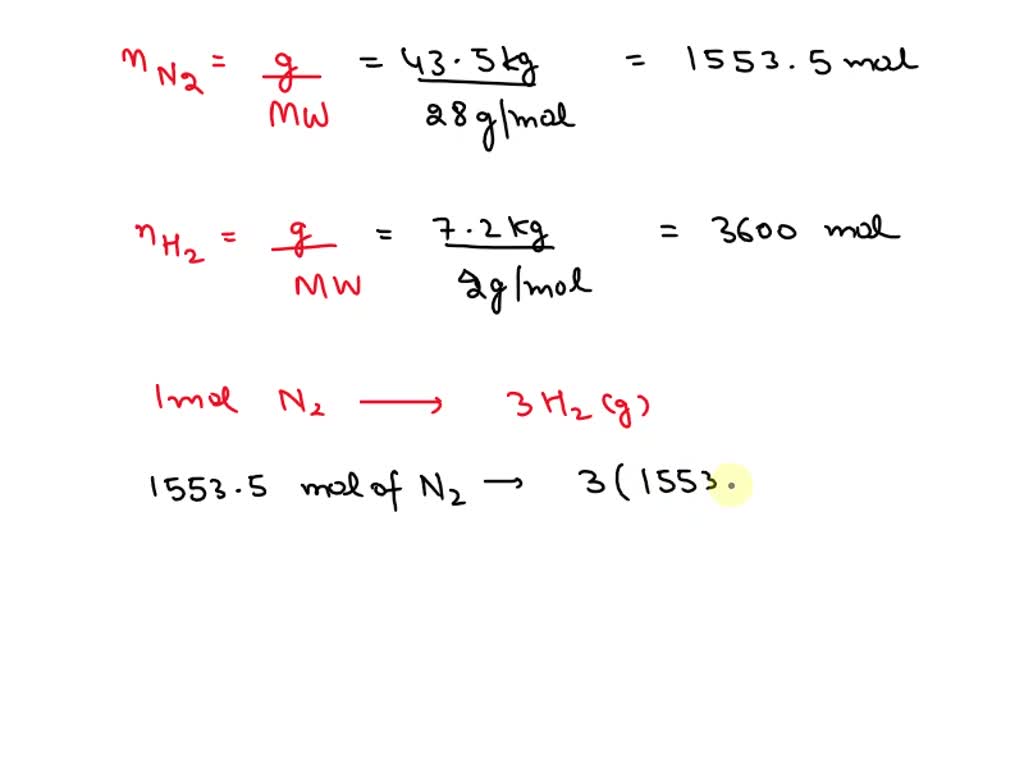 n N2 = g / MW = 43.5 kg / 28 g/mol = 1553.5 mol
n H2 = g / MW = 7.2 kg / 2g/mol = 3600 mol
1mol N2 ⟶ 3 H2 (g)
1553.5 mol of N2 → 3 ( 1553.